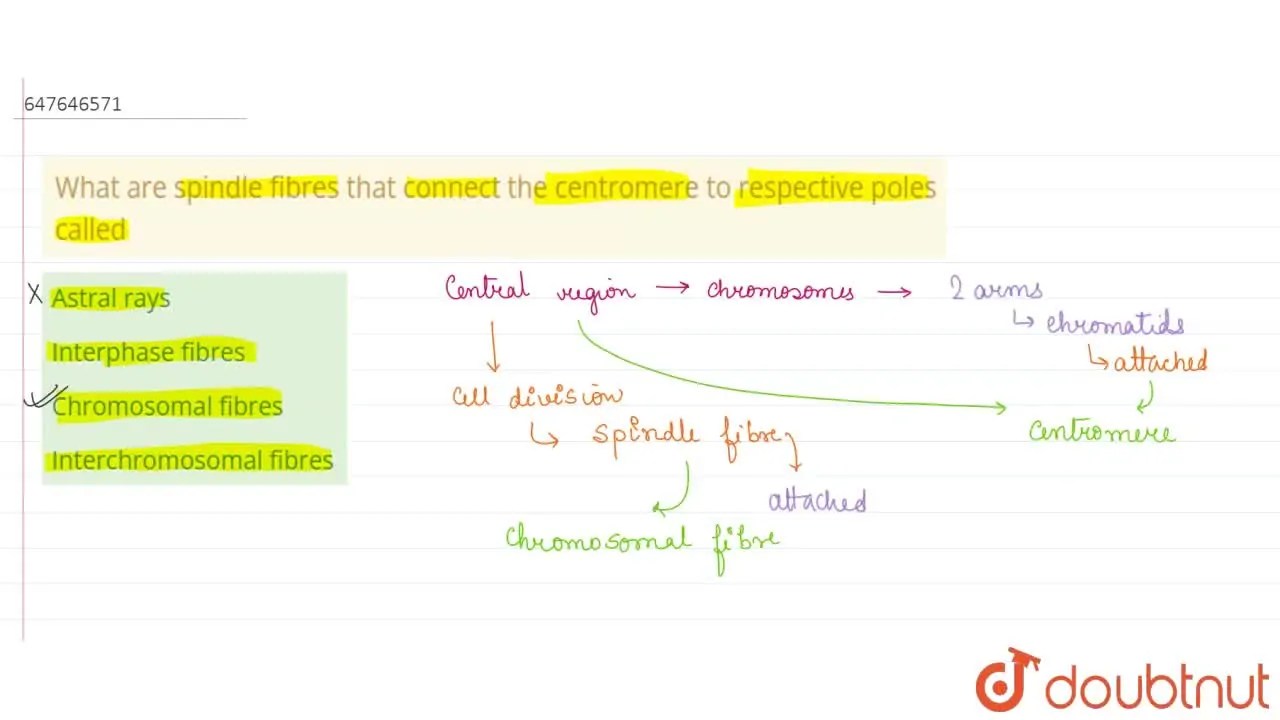 647646571
What are spindle fibres that connect the centromere to respective poles
called
X Astral rays
Interphase fibres
Chromosomal fibres
Interchromosomal fibres
Central region → chromosomes → 2 arms
↳ chromatids
↳ attached
centromere
Cell division
↳ spindle fibre
attached
Chromosomal fibre
doubtnut